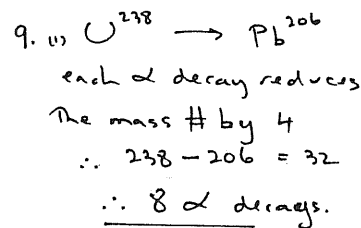 9. (1) U²³⁸ → Pb²⁰⁶
each α decay reduces
The mass # by 4
∴ 238 - 206 = 32
∴ 8 α decays.